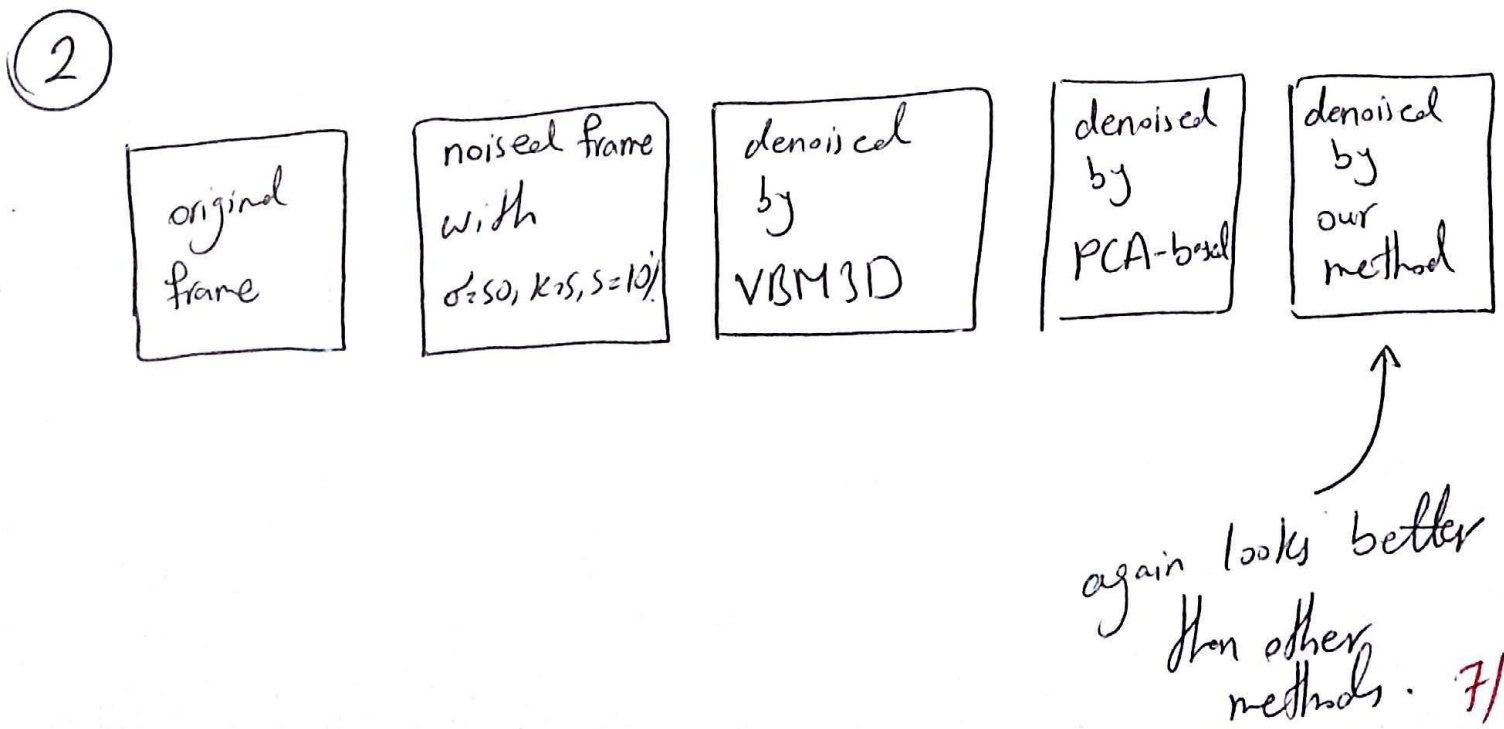 2
original
frame
noised frame
with
σ=50, k=5, s=10%
denoised
by
VBM3D
denoised
by
PCA-based
denoised
by
our
method
again looks better
then other
methods.
7/